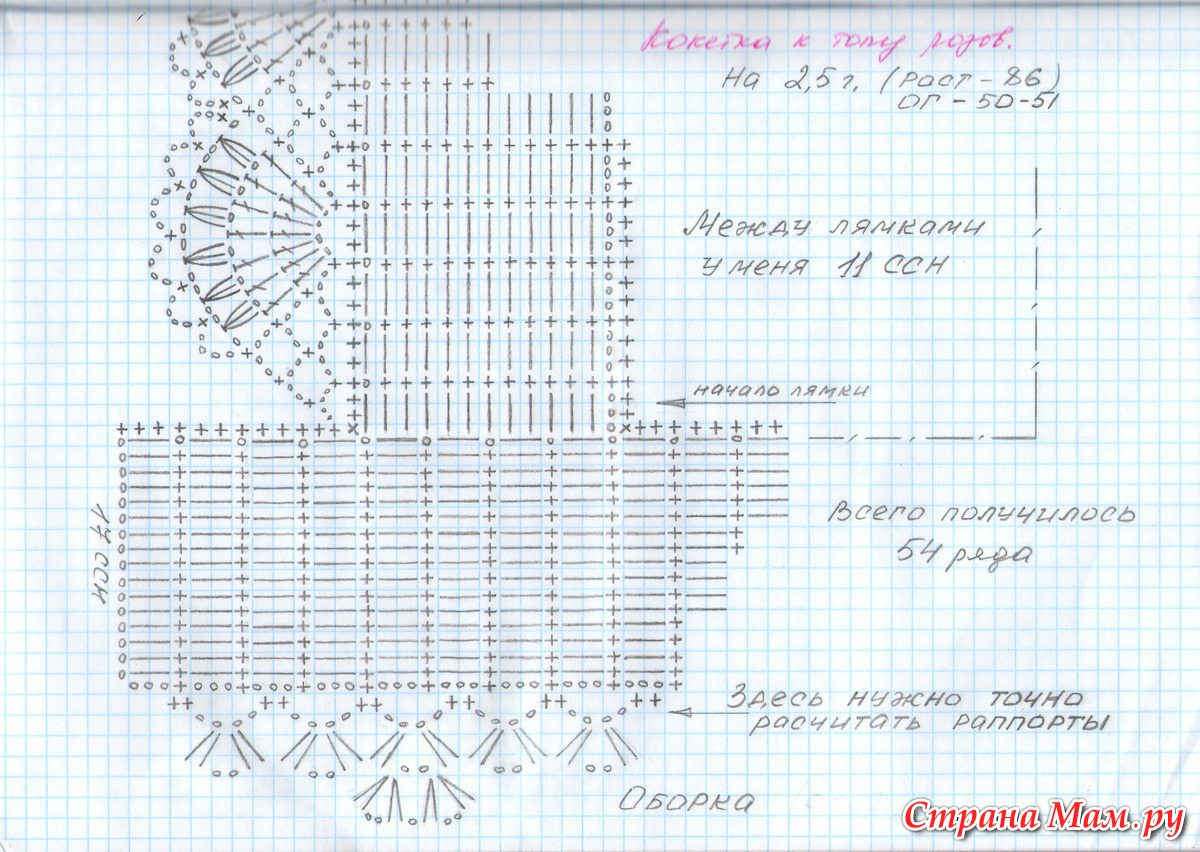 Кокетка к топу розов.
На 2,5 г. (рост - 86)
ОГ - 50-51
Между лямками
у меня 11 ССН
начало лямки
Всего получилось
54 ряда
17 ССН
Здесь нужно точно
расчитать раппорты
Оборка
Страна Мам.ру